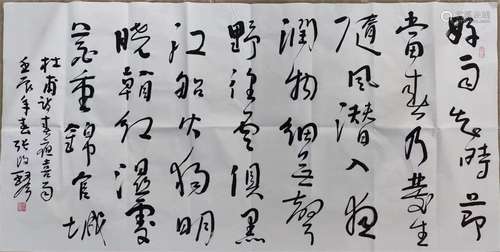 好雨知時節
當春乃發生
隨風潛入夜
潤物細無聲
野徑雲俱黑
江船火獨明
曉看紅濕處
花重錦官城
杜甫詩春夜喜雨
壬辰年春張改琴